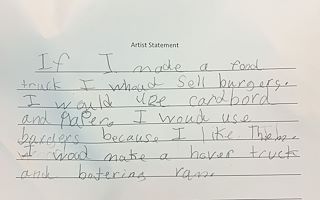 Artist Statement
If I made a food
truck I whoud Sell burgers.
I would use cardbord
and Paper. I woud use
burgers because I like
I woud make a hover truck
and batering ram.